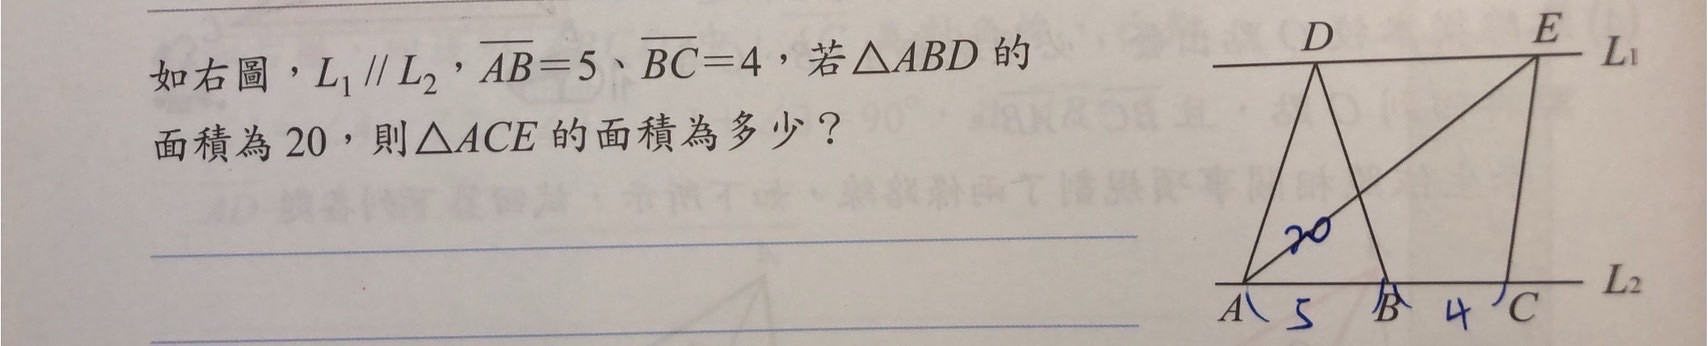 如右圖，L₁ // L₂，AB=5、BC=4，若△ABD 的
面積為 20，則△ACE 的面積為多少？
D E L₁
20
A B C L₂
5 4